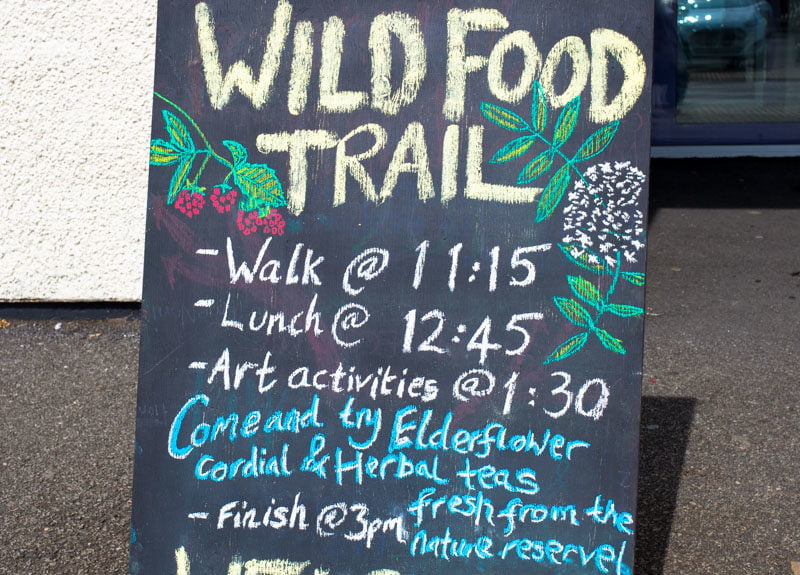 WILD FOOD
TRAIL
- Walk @ 11:15
- Lunch @ 12:45
- Art activities @ 1:30
Come and try Elderflower
cordial & Herbal teas
fresh from the
nature reserve!
- Finish @ 3pm